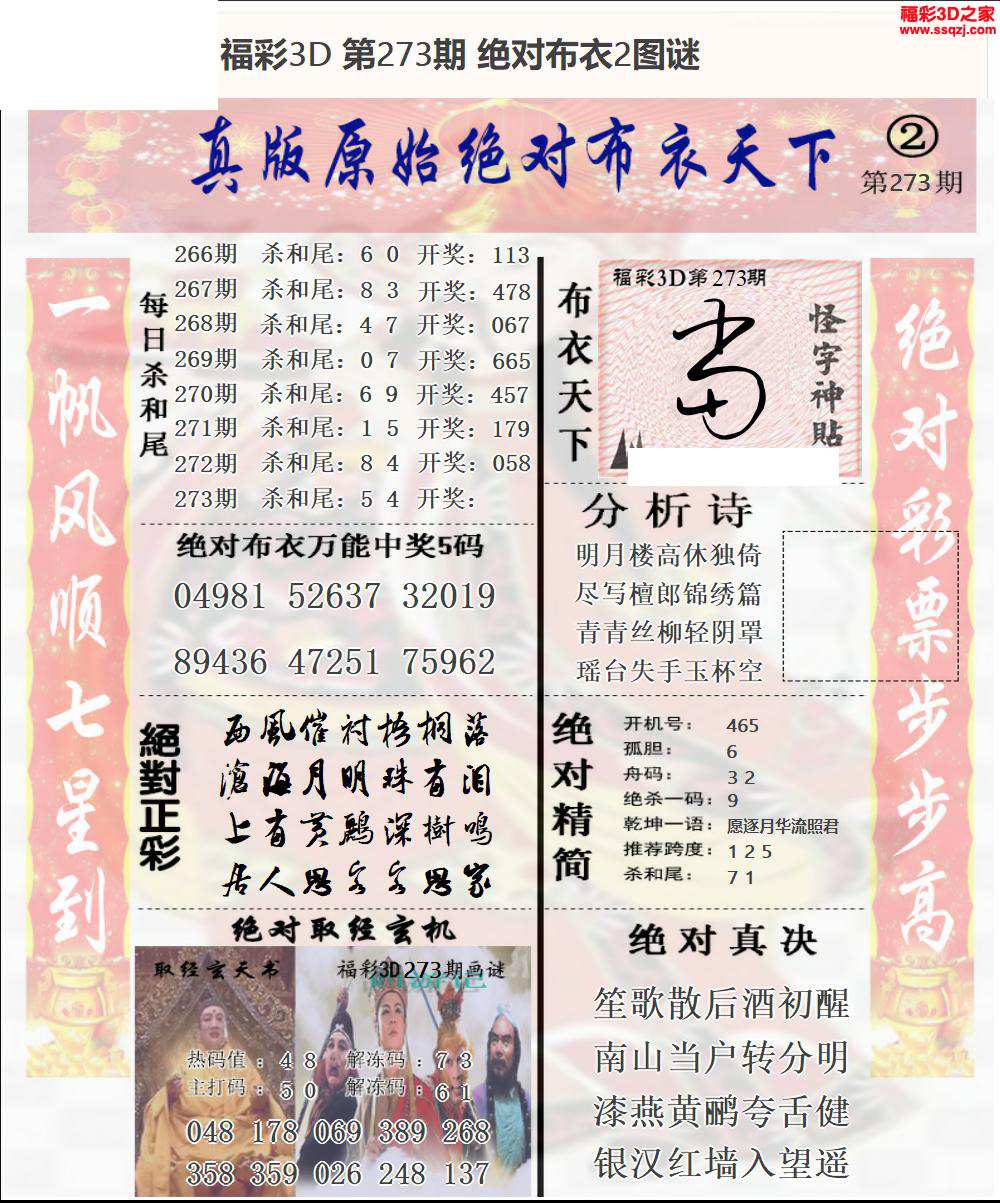 福彩3D之家
www.ssqzj.com
福彩3D 第273期 绝对布衣2图谜
真版原始绝对布衣天下
②
第273期
一帆风顺七星到
每日杀和尾
266期 杀和尾：6 0 开奖：113
267期 杀和尾：8 3 开奖：478
268期 杀和尾：4 7 开奖：067
269期 杀和尾：0 7 开奖：665
270期 杀和尾：6 9 开奖：457
271期 杀和尾：1 5 开奖：179
272期 杀和尾：8 4 开奖：058
273期 杀和尾：5 4 开奖：
绝对布衣万能中奖5码
04981 52637 32019
89436 47251 75962
絕對正彩
西風催衬梧桐落
滄海月明珠有泪
上有黄鸝深樹鳴
居人思客客思家
绝对取经玄机
取经玄天书
福彩3D273期画谜
热码值：4 8 解冻码：7 3
主打码：5 0 解冻码：6 1
048 178 069 389 268
358 359 026 248 137
布衣天下
福彩3D第273期
怪字神貼
分析诗
明月楼高休独倚
尽写檀郎锦绣篇
青青丝柳轻阴罩
瑶台失手玉杯空
绝对精简
开机号：465
孤胆：6
舟码：3 2
绝杀一码：9
乾坤一语：愿逐月华流照君
推荐跨度：1 2 5
杀和尾：7 1
绝对真决
笙歌散后酒初醒
南山当户转分明
漆燕黄鹂夸舌健
银汉红墙入望遥
绝对彩票步步高